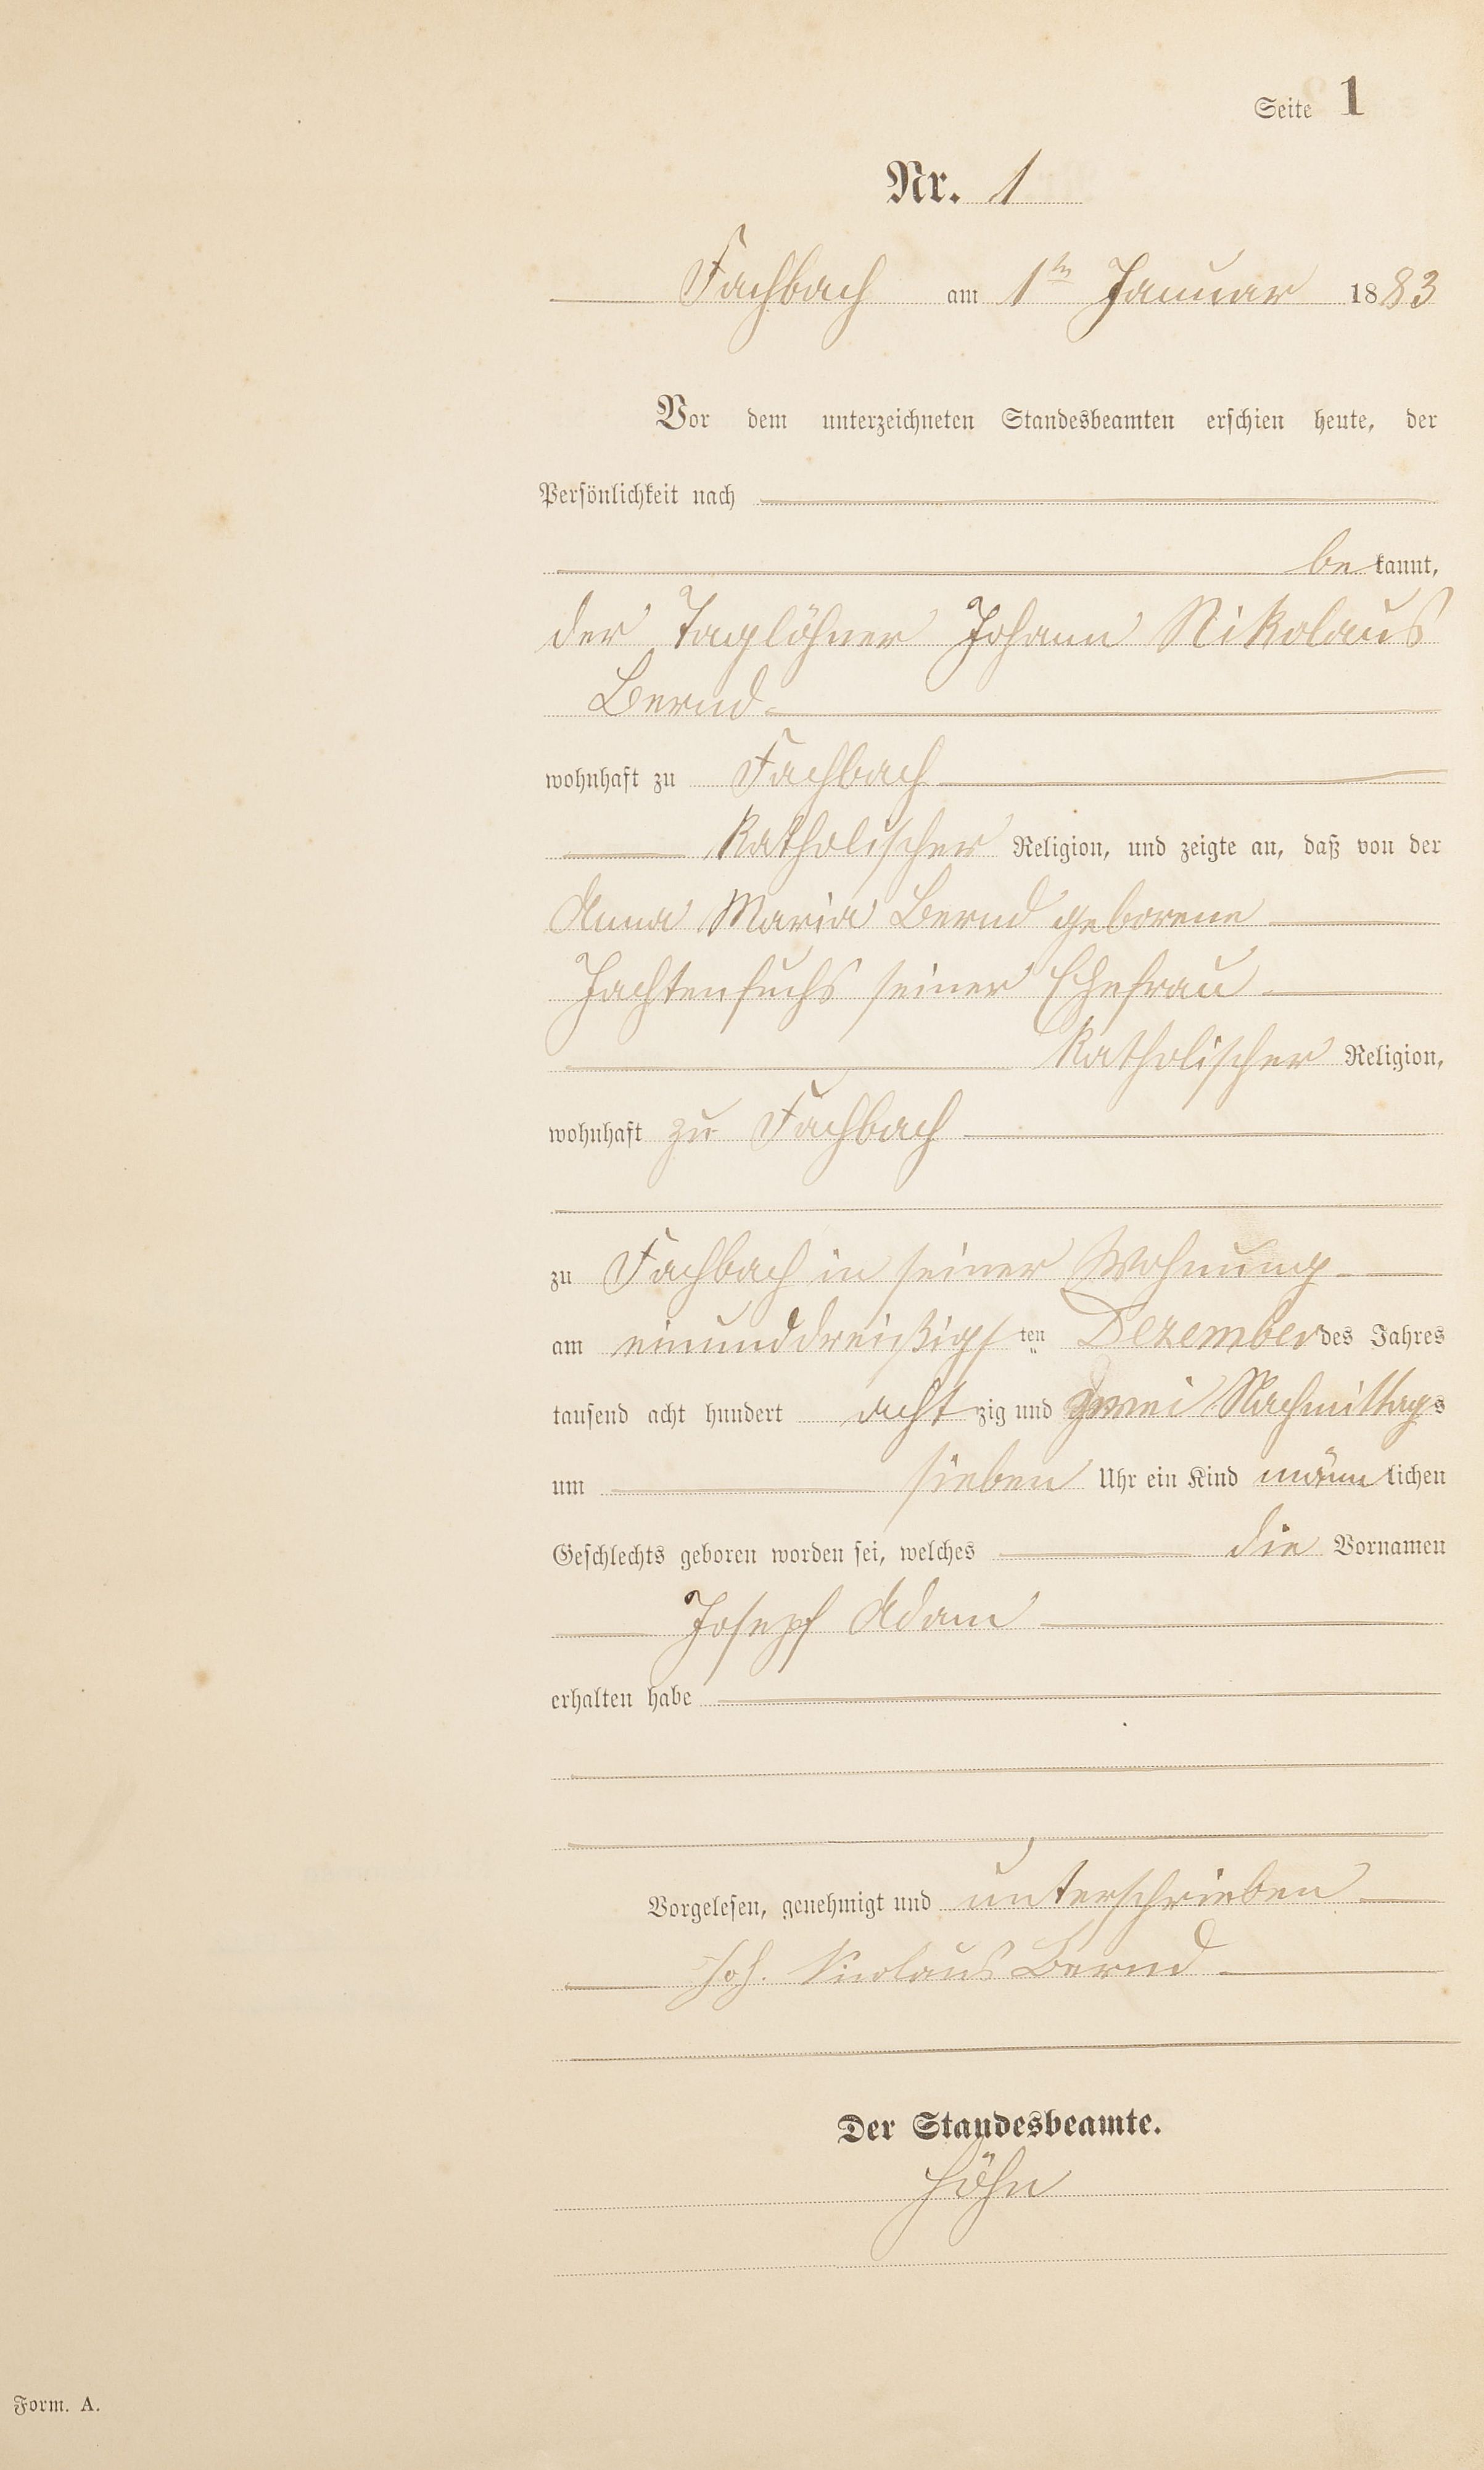 Seite 1
Nr. 1
Fachbach am 1ten Januar 1883
Vor dem unterzeichneten Standesbeamten erschien heute, der
Persönlichkeit nach
bekannt,
der Taglöhner Johann Nikolaus
Bernd
wohnhaft zu Fachbach
katholischer Religion, und zeigte an, daß von der
Anna Maria Bernd geborene
Jachtenfuchs seiner Ehefrau
katholischer Religion,
wohnhaft zu Fachbach
zu Fachbach in seiner Wohnung
am einunddreißigsten Dezember des Jahres
tausend acht hundert achtzig und zwei Nachmittags
um sieben Uhr ein Kind männlichen
Geschlechts geboren worden sei, welches die Vornamen
Joseph Adam
erhalten habe
Vorgelesen, genehmigt und unterschrieben
Joh. Nicolaus Bernd
Der Standesbeamte.
Höhn
Form. A.